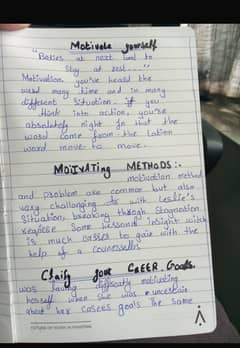 Motivate yourself
"Bodies at rest tend to
stay at rest...."
Motivation you've heard the
word many time and in many
different situation. If you
think into action, you're
absolutely right in that the
word come from the Latien
word move to move.
MOTIVATING METHODS:-
motivation method
and problem are common but also
very challenging as with Leslie's
situation, breaking through Stagnation
require some personal insight which
is much easier to gain with the
help of a counsellor
Clarify your CAREER Goals.
was having difficulty motivating
herself when she was uncertain
about her career goals The same